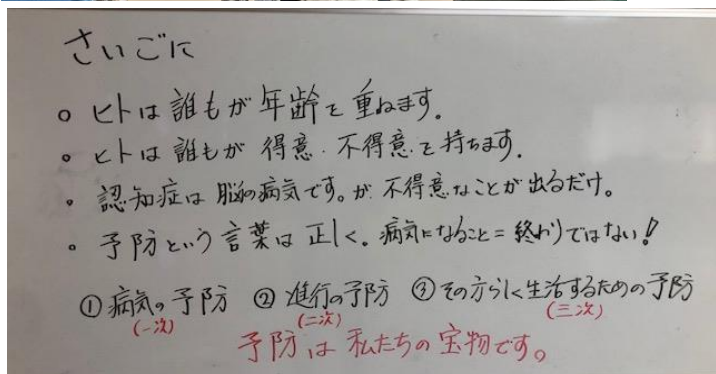 さいごに
○ ヒトは誰もが年齢を重ねます。
○ ヒトは誰もが 得意・不得意を持ちます。
・ 認知症は脳の病気です。が 不得意なことが出るだけ。
○ 予防という言葉は正しく。病気になること=終わりではない!
① 病気の予防 ② 進行の予防 ③ その方らしく生活するための予防
(一次) (二次) (三次)
予防は私たちの宝物です。